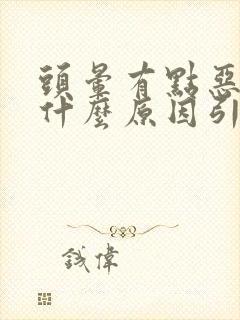 頭暈有點惡
什麼原因引
钱偉